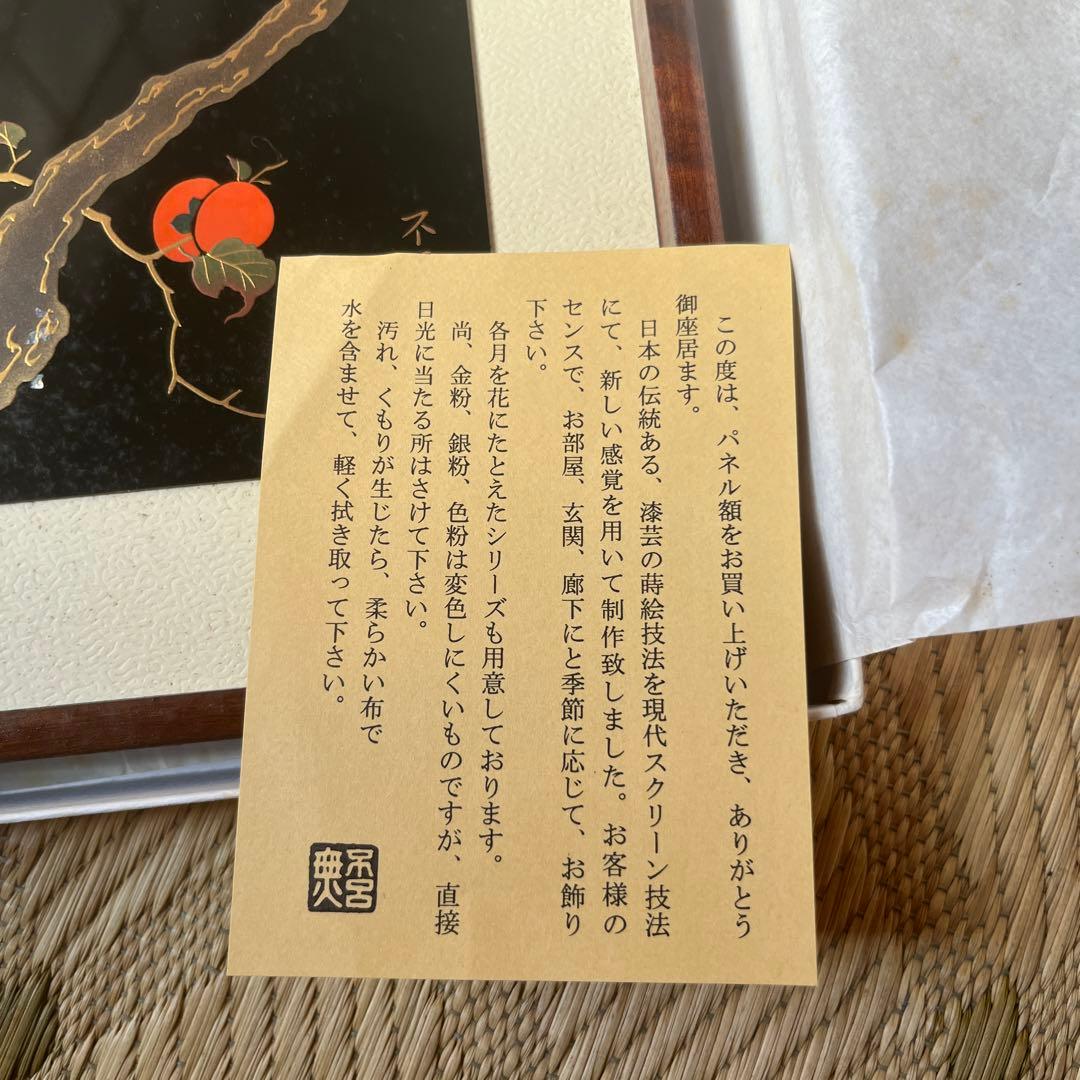 この度は、パネル額をお買い上げいただき、ありがとう
御座居ます。
日本の伝統ある、漆芸の蒔絵技法を現代スクリーン技法
にて、新しい感覚を用いて制作致しました。お客様の
センスで、お部屋、玄関、廊下にと季節に応じて、お飾り
下さい。
各月を花にたとえたシリーズも用意しております。
尚、金粉、銀粉、色粉は変色しにくいものですが、直接
日光に当たる所はさけて下さい。
汚れ、くもりが生じたら、柔らかい布で
水を含ませて、軽く拭き取って下さい。
不